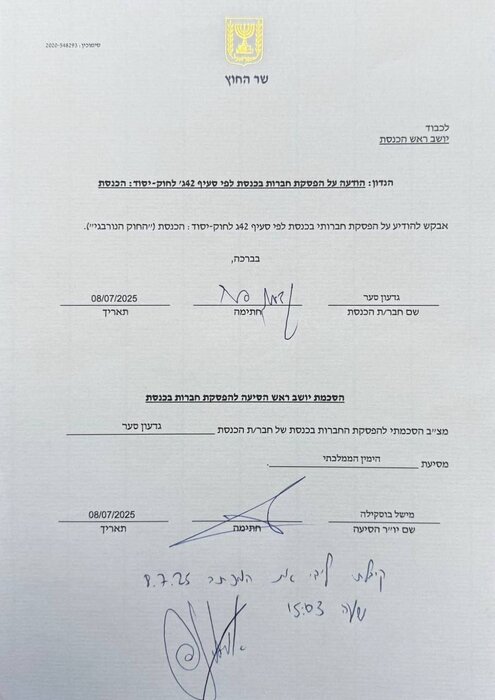 סימוכין: 2020-548293
שר החוץ
לכבוד
יושב ראש הכנסת
הנדון: הודעה על הפסקת חברות בכנסת לפי סעיף 42ג' לחוק-יסוד: הכנסת
אבקש להודיע על הפסקת חברותי בכנסת לפי סעיף 42ג לחוק-יסוד: הכנסת ("החוק הנורבגי").
בברכה,
גדעון סער 08/07/2025
שם חבר/ת הכנסת חתימה תאריך
הסכמת יושב ראש הסיעה להפסקת חברות בכנסת
מצ"ב הסכמתי להפסקת החברות בכנסת של חבר/ת הכנסת גדעון סער
מסיעת הימין הממלכתי.
מישל בוסקילה 08/07/2025
שם יו"ר הסיעה חתימה תאריך
קיבלתי לידי את המכתב 8.7.25
שעה 15:03